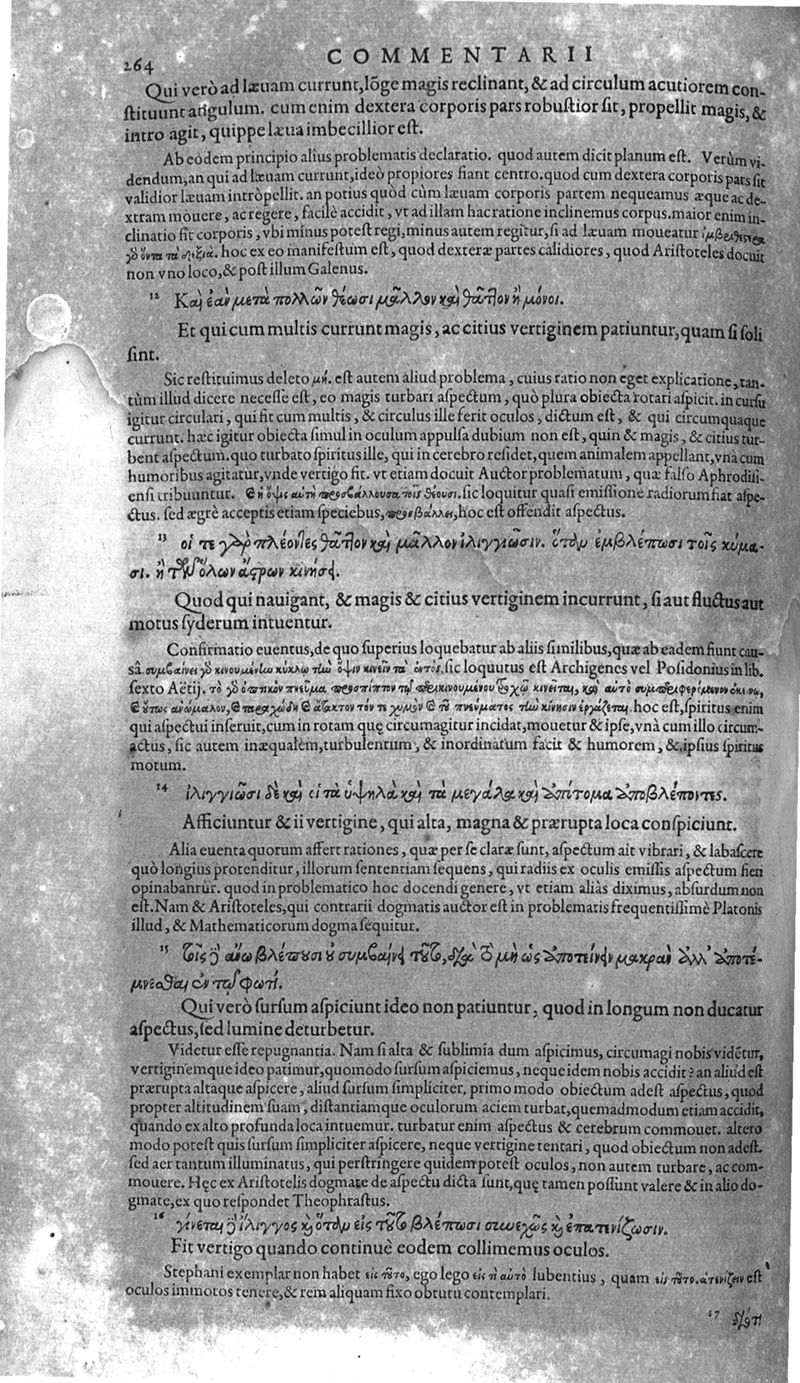 264 COMMENTARII
Qui verò ad læuam currunt, lõge magis reclinant, & ad circulum acutiorem con-
ſtituunt angulum. cum enim dextera corporis pars robuſtior ſit, propellit magis, &
intro agit, quippe læua imbecillior eſt.
Ab eodem principio alius problematis declaratio. quod autem dicit planum eſt. Verùm vi-
dendum, an qui ad læuam currunt, ideò propiores fiant centro. quod cum dextera corporis pars ſit
validior læuam intròpellit. an potius quòd cùm læuam corporis partem nequeamus æque ac de-
xtram mouere, ac regere, facilè accidit, vt ad illam hac ratione inclinemus corpus. maior enim in-
clinatio fit corporis, vbi minus poteſt regi, minus autem regitur, ſi ad læuam moueatur
hoc ex eo manifeſtum eſt, quod dexteræ partes calidiores, quod Ariſtoteles docuit
non vno loco, & poſt illum Galenus.
12 Καὶ ἐὰν μετὰ πολλῶν θέωσι μᾶλλον καὶ θᾶττον ἢ μόνοι.
Et qui cum multis currunt magis, ac citius vertiginem patiuntur, quam ſi ſoli
ſint.
Sic reſtituimus deleto μή. eſt autem aliud problema, cuius ratio non eget explicatione, tan-
tùm illud dicere neceſſe eſt, eo magis turbari aſpectum, quò plura obiecta rotari aſpicit. in curſu
igitur circulari, qui fit cum multis, & circulus ille ferit oculos, dictum eſt, & qui circumquaque
currunt. hæc igitur obiecta ſimul in oculum appulſa dubium non eſt, quin & magis, & citius tur-
bent aſpectum. quo turbato ſpiritus ille, qui in cerebro reſidet, quem animalem appellant, vnà cum
humoribus agitatur, vnde vertigo fit. vt etiam docuit Auctor problematum, quæ falſo Aphrodiſi-
enſi tribuuntur. καὶ ἡ ὄψις αὐτὴ προσβάλλουσα τοῖς θέουσι. ſic loquitur quaſi emiſſione radiorum fiat aſpe-
ctus. ſed ægrè acceptis etiam ſpeciebus, προσβάλλει, hoc eſt offendit aſpectus.
13 οἵ τε γὰρ πλέοντες θᾶττον καὶ μᾶλλον ἰλιγγιῶσιν. ὅταν ἐμβλέπωσι τοῖς κύμα-
σι. ἢ τὴν ὅλων ἄστρων κίνησιν.
Quod qui nauigant, & magis & citius vertiginem incurrunt, ſi aut fluctus aut
motus ſyderum intuentur.
Confirmatio euentus, de quo ſuperius loquebatur ab aliis ſimilibus, quæ ab eadem fiunt cau-
ſâ. συμβαίνει γὰρ κινουμένῳ κύκλῳ τὴν ὄψιν κινεῖν τὰ ὄντος. ſic loquutus eſt Archigenes vel Poſidonius in lib.
ſexto Aëtij. τὸ γὰρ ὀπτικὸν πνεῦμα προσπίπτον τῷ περικινουμένου τροχῷ κινεῖται, καὶ αὐτὸ συμπεριφερόμενον ἐκείνῳ,
καὶ οὕτως ἀνώμαλον, καὶ ταραχώδη καὶ ἄτακτον τόν τε χυμὸν καὶ τοῦ πνεύματος τὴν κίνησιν ἐργάζεται. hoc eſt, ſpiritus enim
qui aſpectui inſeruit, cum in rotam quę circumagitur incidat, mouetur & ipſe, vnà cum illo circum-
actus, ſic autem inæqualem, turbulentum, & inordinatum facit & humorem, & ipſius ſpiritus
motum.
14 ἰλιγγιῶσι δὲ καὶ εἰ τὰ ὑψηλὰ καὶ τὰ μεγάλα καὶ ἀπότομα ἀποβλέποντες.
Afficiuntur & ii vertigine, qui alta, magna & prærupta loca conſpiciunt.
Alia euenta quorum affert rationes, quæ per ſe claræ ſunt, aſpectum ait vibrari, & labaſcere
quò longius protenditur, illorum ſententiam ſequens, qui radiis ex oculis emiſſis aſpectum fieri
opinabantur. quod in problematico hoc docendi genere, vt etiam aliàs diximus, abſurdum non
eſt. Nam & Ariſtoteles, qui contrarii dogmatis auctor eſt in problematis frequentiſſimè Platonis
illud, & Mathematicorum dogma ſequitur.
15 τοῖς δ' ἄνω βλέπουσι οὐ συμβαίνει τοῦτο, διὰ τὸ μὴ ὡς ἀποτείνειν μακρὰν ἀλλ' ἀποτέ-
μνεσθαι ἐν τῷ φωτί.
Qui verò ſurſum aſpiciunt ideo non patiuntur, quod in longum non ducatur
aſpectus, ſed lumine deturbetur.
Videtur eſſe repugnantia. Nam ſi alta & ſublimia dum aſpicimus, circumagi nobis vidẽtur,
vertiginemque ideo patimur, quomodo ſurſum aſpiciemus, neque idem nobis accidit? an aliud eſt
prærupta altaque aſpicere, aliud ſurſum ſimpliciter. primo modo obiectum adeſt aſpectus, quod
propter altitudinem ſuam, diſtantiamque oculorum aciem turbat, quemadmodum etiam accidit,
quando ex alto profunda loca intuemur. turbatur enim aſpectus & cerebrum commouet. altero
modo poteſt quis ſurſum ſimpliciter aſpicere, neque vertigine tentari, quod obiectum non adeſt.
ſed aer tantum illuminatus, qui perſtringere quidem poteſt oculos, non autem turbare, ac com-
mouere. Hęc ex Ariſtotelis dogmate de aſpectu dicta ſunt, quę tamen poſſunt valere & in alio do-
gmate, ex quo reſpondet Theophraſtus.
16 γίνεται δ' ἴλιγγος καὶ ὅταν εἰς τοῦτο βλέπωσι συνεχῶς καὶ ἐπατενίζωσιν.
Fit vertigo quando continuè eodem collimemus oculos.
Stephani exemplar non habet εἰς τοῦτο, ego lego εἰς τὸ αὐτὸ lubentius, quam εἰς τοῦτο. ἀτενίζειν eſt
oculos immotos tenere, & rem aliquam fixo obtutu contemplari.
17 διότι